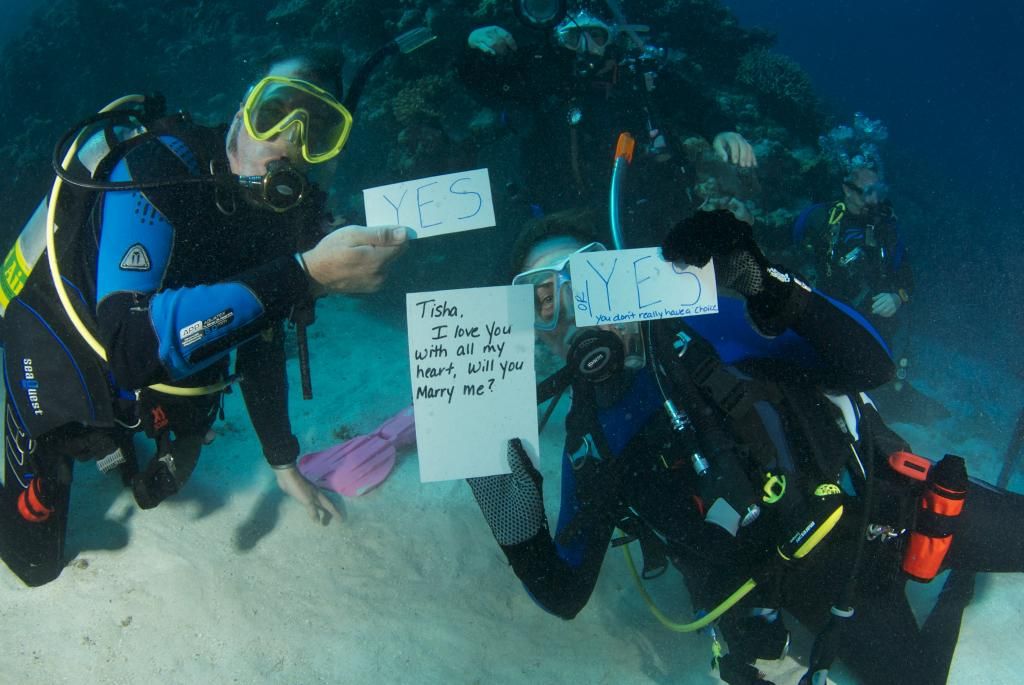 YES
Tisha,
I love you
with all my
heart, Will you
Marry me?
OR
YES
you don't really have a choice
seaquest
Air